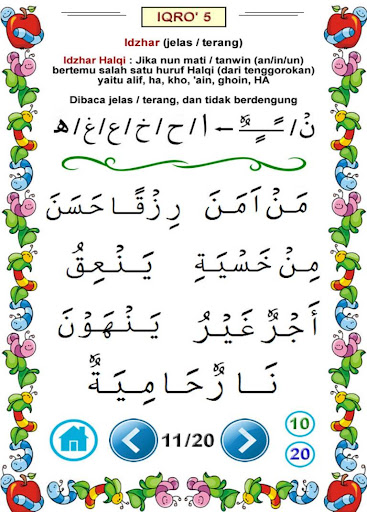 IQRO' 5
Idzhar (jelas / terang)
Idzhar Halqi : Jika nun mati / tanwin (an/in/un)
bertemu salah satu huruf Halqi (dari tenggorokan)
yaitu alif, ha, kho, 'ain, ghoin, HA
Dibaca jelas / terang, dan tidak berdengung
نْ / ـًـٍـٌ ← أ / ح / خ / ع / غ / ه
مَنْ اٰمَنَ رِزْقًا حَسَنَ
مِنْ خَسْيَةِ يَنْعِقُ
أَجْرٌ غَيْرُ يَنْهَوْنَ
نَارٌ حَامِيَةٌ
11/20
10
20